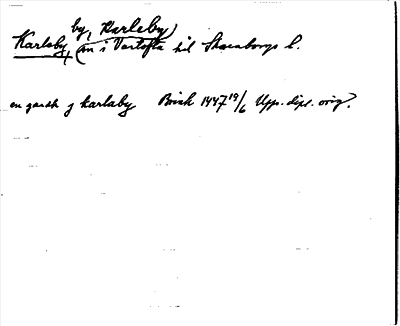 by, Karleby)
Karleby, (nu i Vartofta hd Skaraborgs l.
en gardh j karlaby Birik 1447 19/6 Upps. dipl. orig.